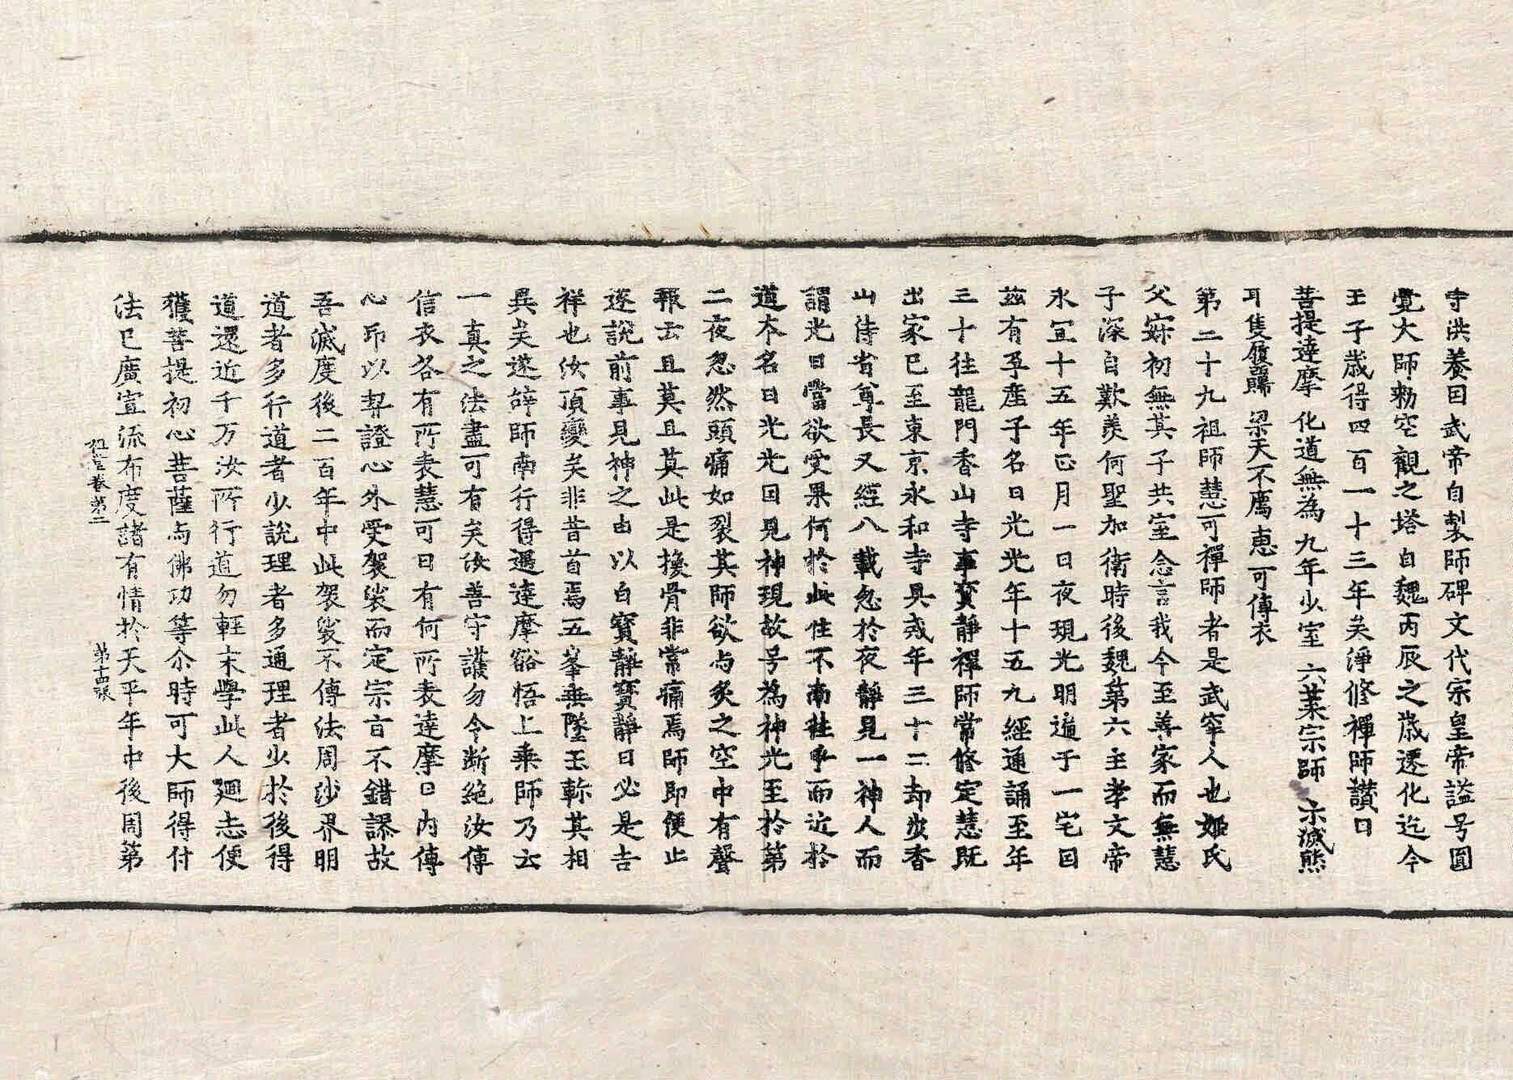 寺洪養因武帝自製師碑文代宗皇帝謚号圓
覺大師勑空觀之塔自魏丙辰之歲遷化迄今
壬子歲得四百一十三年矣淨修禪師讚曰
菩提達摩 化道無為 九年少室 六葉宗師 示滅熊
耳 隻履西歸 梁天不薦 惠可傳衣
第二十九祖師慧可禪師者是武牢人也姬氏
父母初無其子共室念言我今至善家而無慧
子深自歎羨何聖加衛時後魏第六主孝文帝
永宜十五年正月一日夜現光明遍于一宅因
茲有孕產子名曰光光年十五九經通誦至年
三十往龍門香山寺事寶靜禪師常修定慧既
出家已至東京永和寺具戒年三十二却步香
山侍省尊長又經八載忽於夜靜見一神人而
謂光曰當欲受果何於此住不南往乎而近於
道本名曰光光因見神現故号為神光至於第
二夜忽然頭痛如裂其師欲与灸之空中有聲
報云且莫且莫此是換骨非常痛焉師即便止
遂說前事見神之由以白寶靜寶靜曰必是吉
祥也汝頂變矣非昔首焉五峯垂墜玉軫其相
異矣遂辞師南行得遇達摩豁悟上乘師乃云
一真之法盡可有矣汝善守護勿令断絕汝傳
信衣各有所表慧可曰有何所表達摩曰內傳
心印以契證心外受袈裟而定宗旨不錯謬故
吾滅度後二百年中此袈裟不傳法周沙界明
道者多行道者少說理者多通理者少於後得
道還近千万汝所行道勿輕末學此人廻志便
獲菩提初心菩薩与佛功等尒時可大師得付
法已廣宣流布度諸有情於天平年中後周第
祖堂卷第二 第十四張